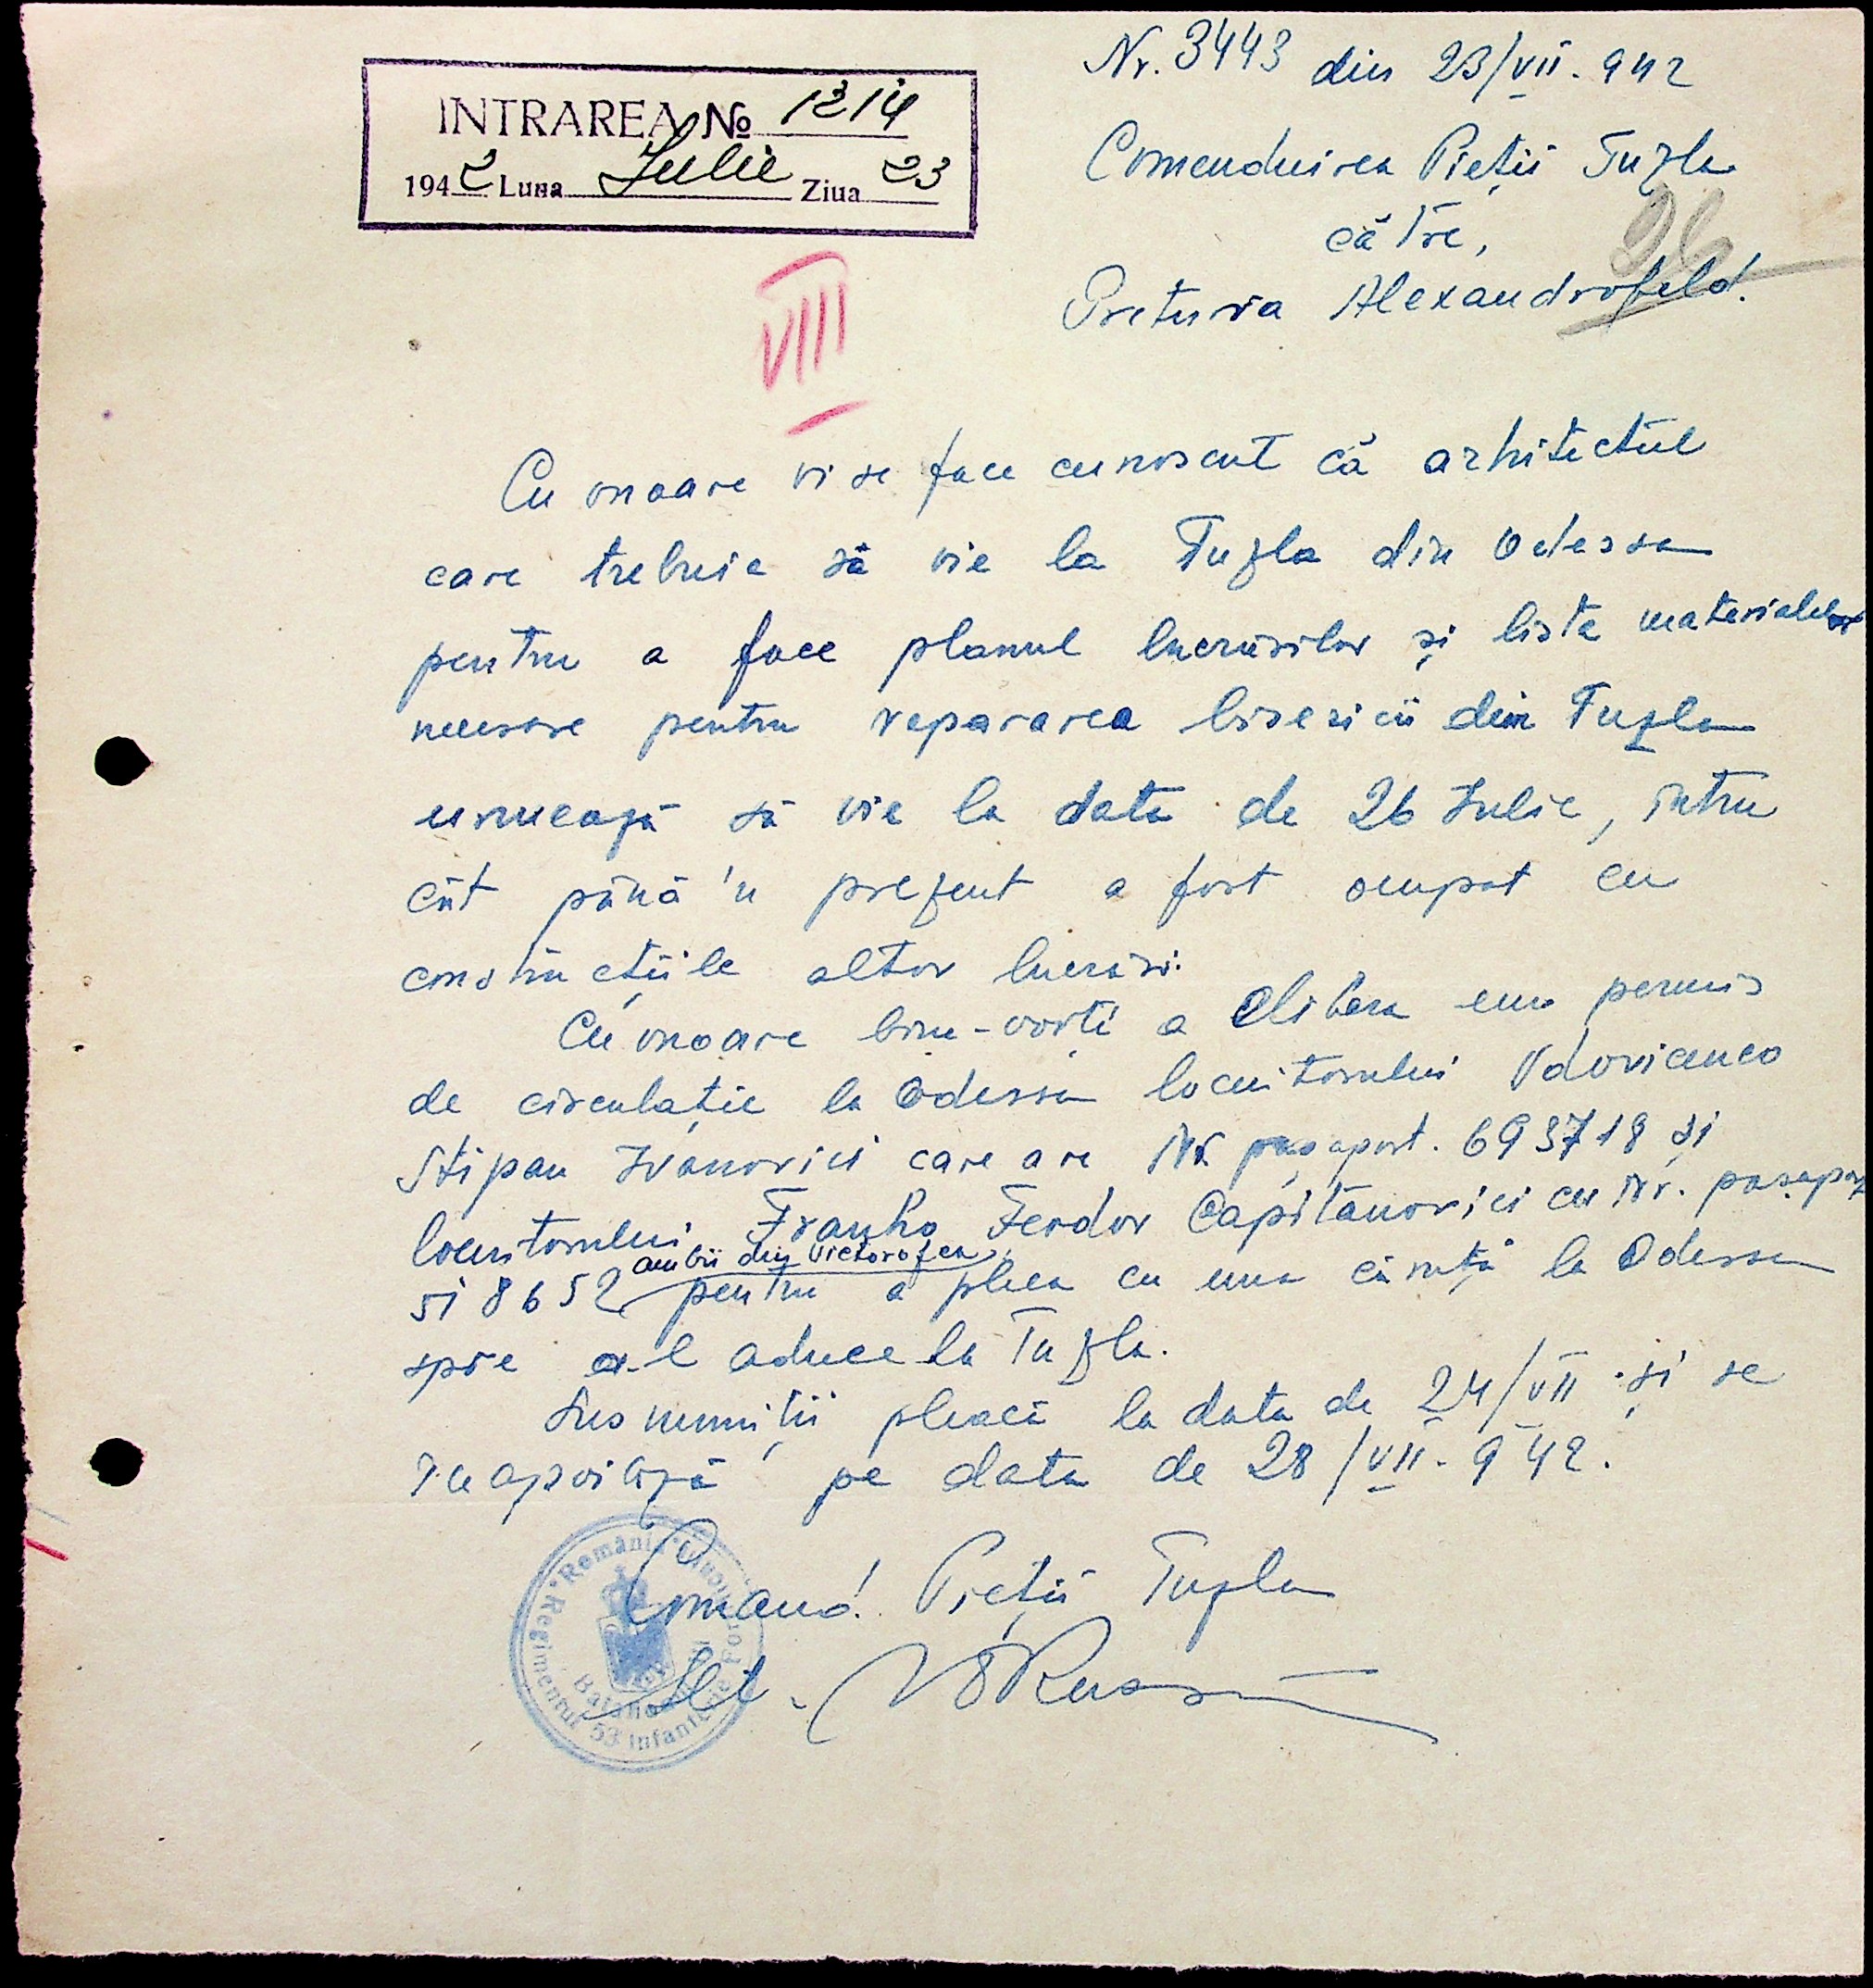 INTRAREA No 1214
1942 Luna Iulie Ziua 23
Nr. 3443 din 23/VII. 942
Comenduirea Pieții Tuzla
către,
Pretura Alexandrofeld.
26
VIII
Cu onoare vi se face cunoscut că arhitectul
care trebuie să vie la Tuzla din Odessa
pentru a face planul lucrărilor și lista materialelor
necesare pentru repararea bisericii din Tuzla
urmează să vie la data de 26 Iulie, întru
cât până 'n prezent a fost ocupat cu
construcțiile altor lucrări.
Cu onoare bine-voiți a elibera un permis
de circulație la Odessa locuitorului Vdovicenco
Stipan Ivanovici care are Nr. pașaport. 693718 și
locuitorului Franko Feodor Capitanovici cu Nr. pașaport
518652 pentru a pleca cu una căruță la Odessa
ambii din Victorofca
spre a-l aduce la Tuzla.
Sus numiții pleacă la data de 24/VII și se
reapoiază pe data de 28/VII. 942.
Comand. Pieții Tuzla
Slt. Russu
România
Regimentul 53 Infanterie
Batalionul